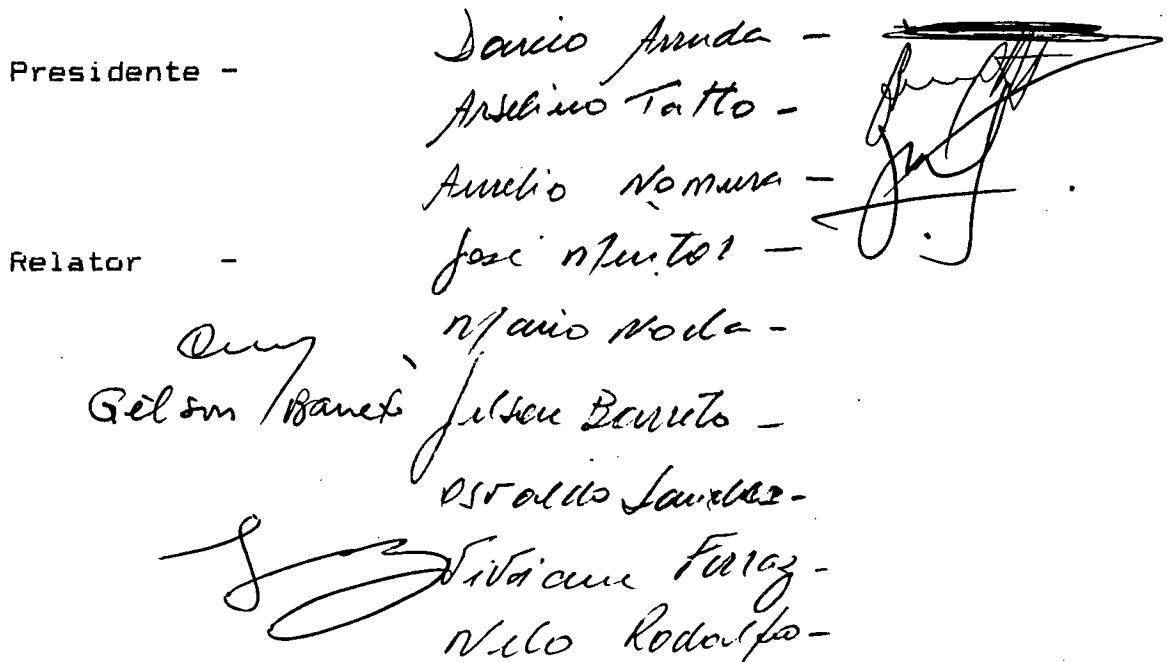 Dárcio Arruda -
Presidente -
Arselino Tatto -
Aurelio Nomura -
Relator - José Mentor -
Mario Noda -
Gilson Barreto Gilson Barreto -
Osvaldo Sanches -
Viviane Ferraz -
Nelo Rodolfo -